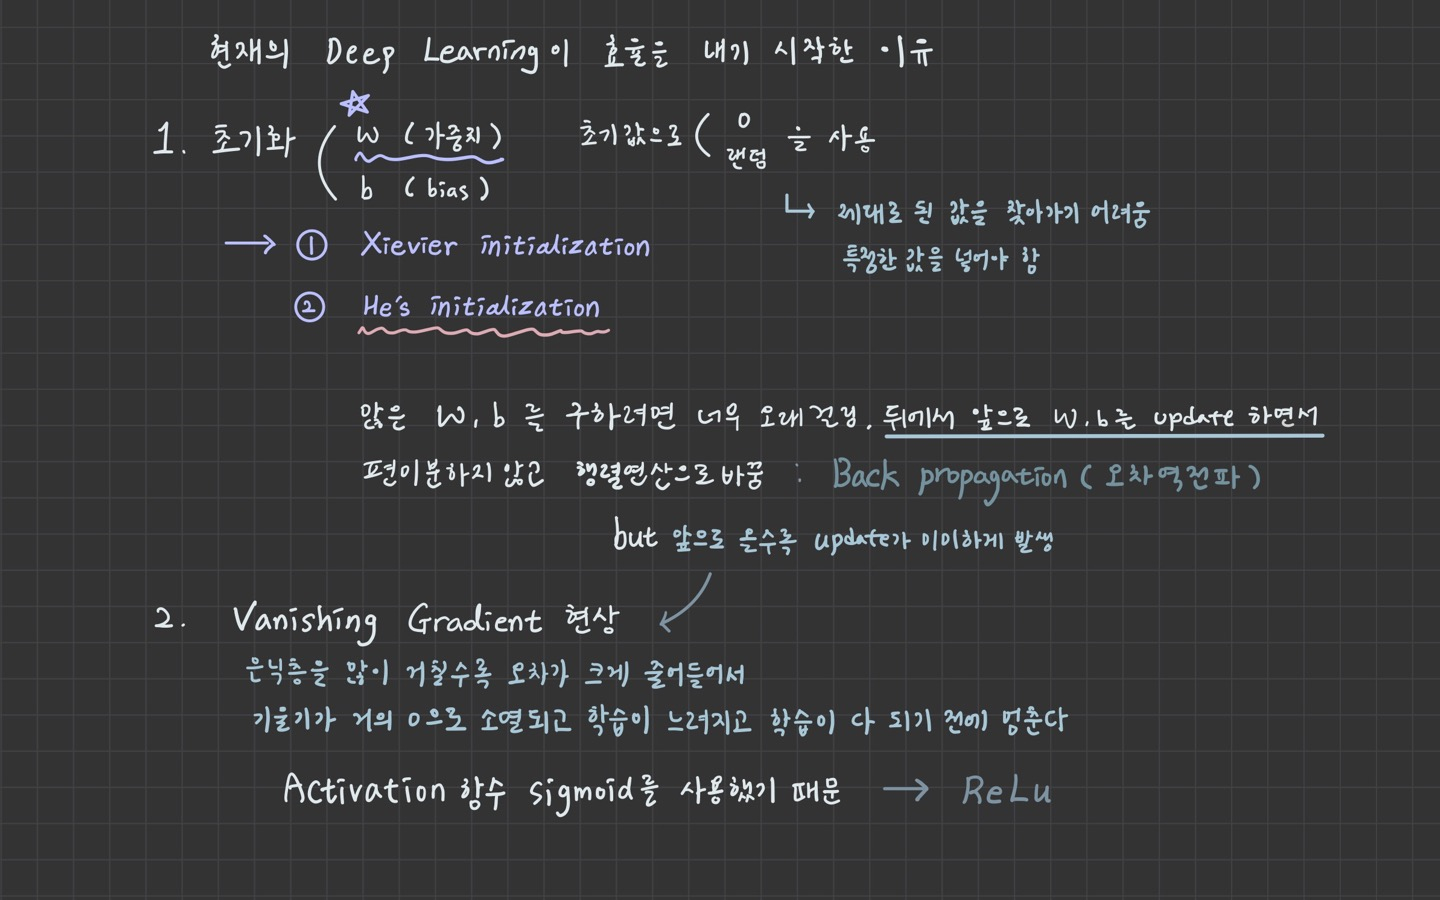 현재의 Deep Learning이 효율을 내기 시작한 이유
1. 초기화 ( w (가중치) 초기값으로 ( 0 랜덤 을 사용
b (bias)
↳ 제대로 된 값을 찾아가기 어려움
특정한 값을 넣어야 함
→ ① Xievier initialization
② He's initialization
많은 W, b 를 구하려면 너무 오래걸림. 뒤에서 앞으로 W, b를 update 하면서
편미분하지 않고 행렬연산으로 바꿈 : Back propagation (오차역전파)
but 앞으로 올수록 update가 미미하게 발생
2. Vanishing Gradient 현상
은닉층을 많이 거칠수록 오차가 크게 줄어들어서
기울기가 거의 0으로 소멸되고 학습이 느려지고 학습이 다 되기 전에 멈춘다
Activation 함수 sigmoid를 사용했기 때문 → ReLu